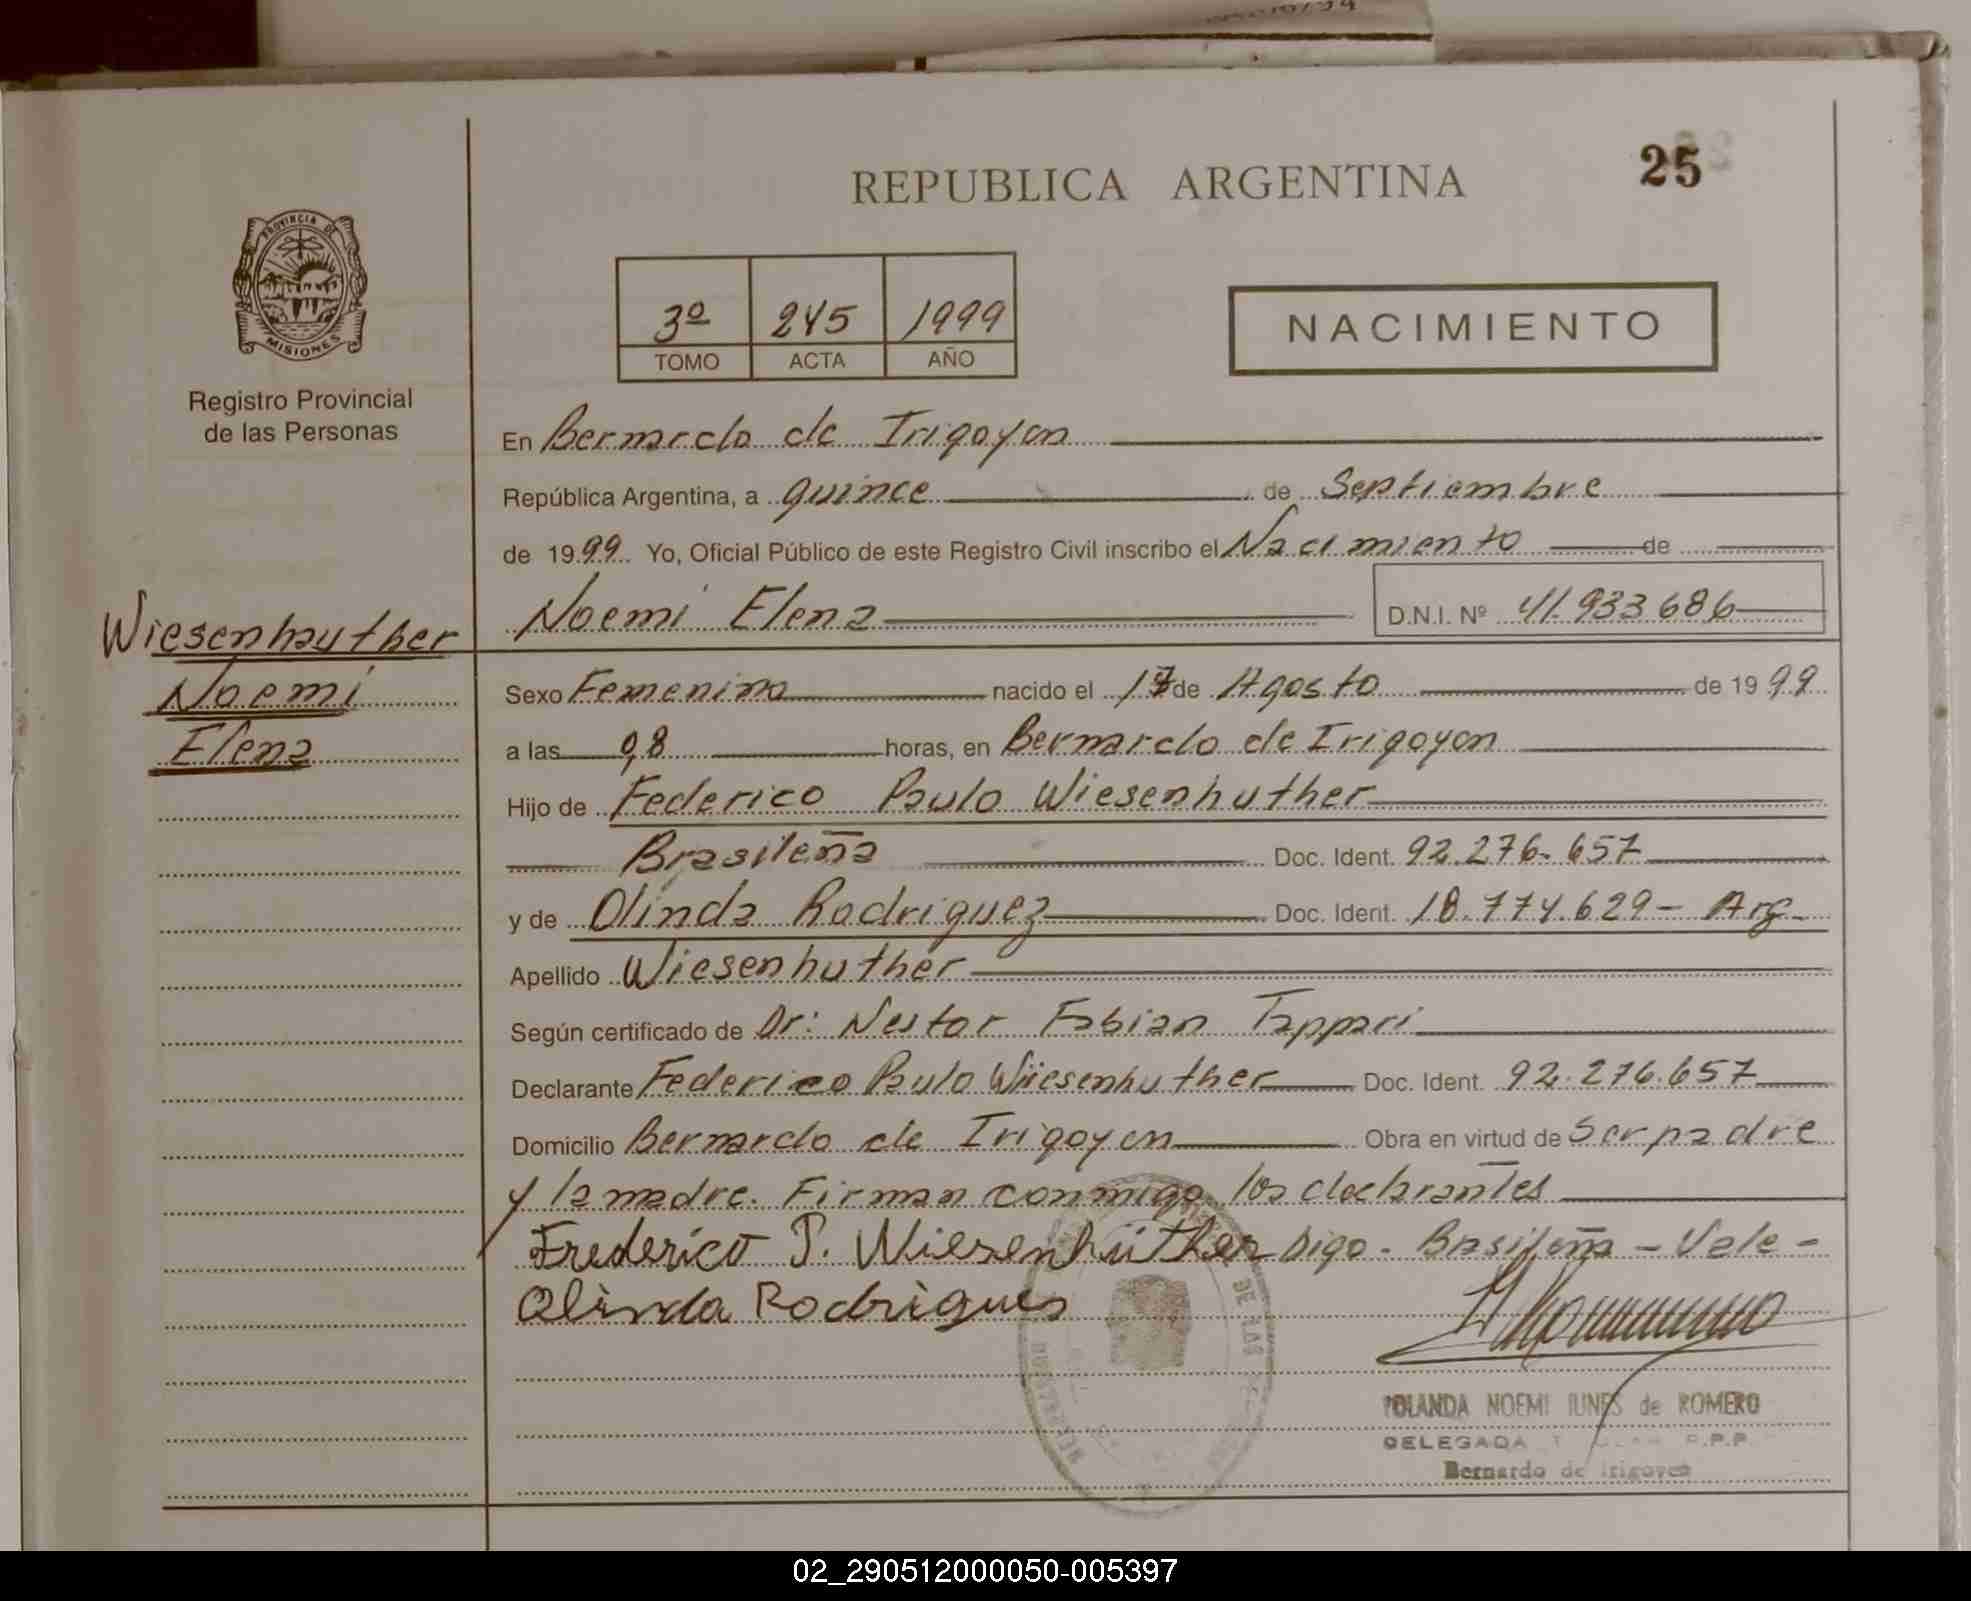 25
REPUBLICA ARGENTINA
PROVINCIA DE
MISIONES
Registro Provincial
de las Personas
3º 245 1999
TOMO ACTA AÑO
NACIMIENTO
En Bernardo de Irigoyen
República Argentina, a quince de Septiembre
de 1999 Yo, Oficial Público de este Registro Civil inscribo el Nacimiento de
Noemi Elena D.N.I. Nº 41.933.686
Wiesenhauther
Noemi
Elena
Sexo Femenino nacido el 17 de Agosto de 1999
a las 08 horas, en Bernardo de Irigoyen
Hijo de Federico Paulo Wiesenhuther
Brasileña Doc. Ident. 92.276.657
y de Olinda Rodriguez Doc. Ident. 18.774.629 - Arg.
Apellido Wiesenhuther
Según certificado de Dr: Nestor Fabian Tappari
Declarante Federico Paulo Wiesenhuther Doc. Ident. 92.276.657
Domicilio Bernardo de Irigoyen Obra en virtud de Ser padre
y la madre. Firman conmigo los declarantes
Frederico P. Wiesenhüther Digo - Brasileña - Vale -
Olinda Rodrigues
DE LAS
YOLANDA NOEMI IUNES de ROMERO
DELEGADA R.P.P.
Bernardo de Irigoyen
02_290512000050-005397